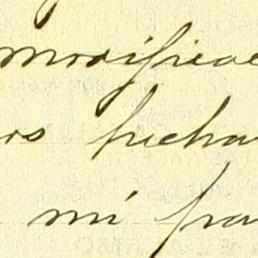 modificac
os fecha
mi pa